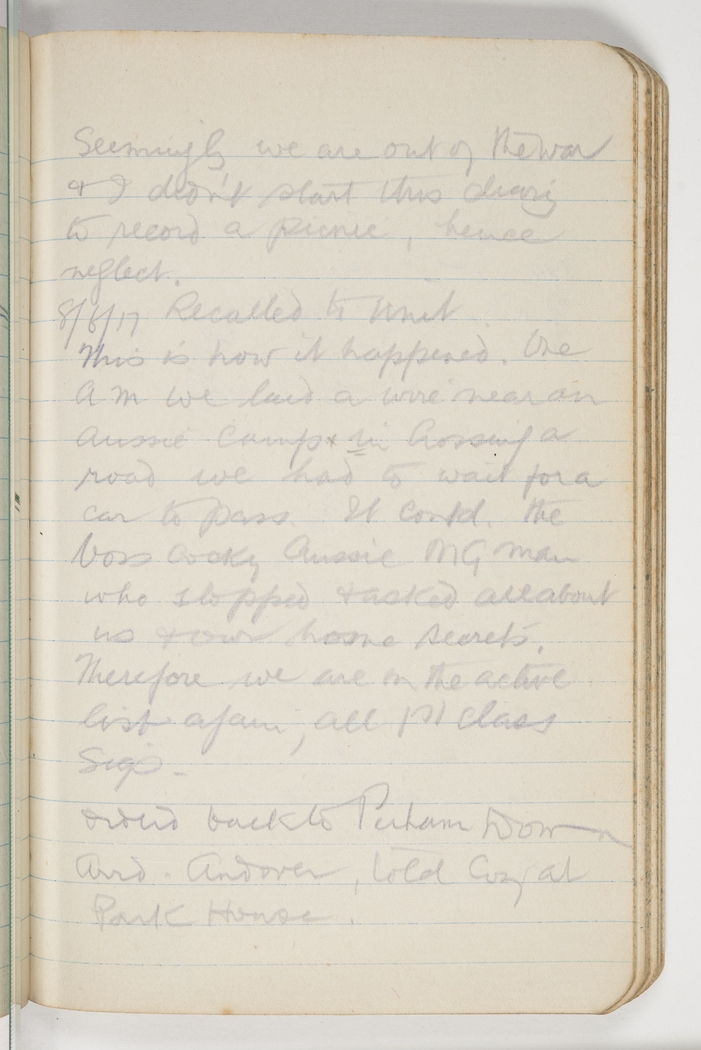 Seemingly we are out of the war
& I didn't start this diary
to record a picnic, hence
neglect.
8/6/17 Recalled to Unit
This is how it happened. One
A M we laid a wire near an
Aussie Camp & in Crossing a
road we had to wait for a
car to pass. It contd. the
boss cocky Aussie MG man
who stopped & asked all about
us & our home secrets.
Therefore we are on the active
list again, all 1st class
Sigs.
back to Perham Down
Arrd. Andover, told Coy at
Park House.